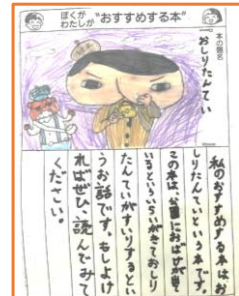 ぼくが
わたしが
"おすすめする本"
本の題名
おしりたんてい
私のおすすめする本はお
しりたんていという本です。
この本は、公園におばけがで
るといういらいがきておしり
たんていがすいりするとい
うお話です。もしよけ
ればぜひ、読んでみて
ください。